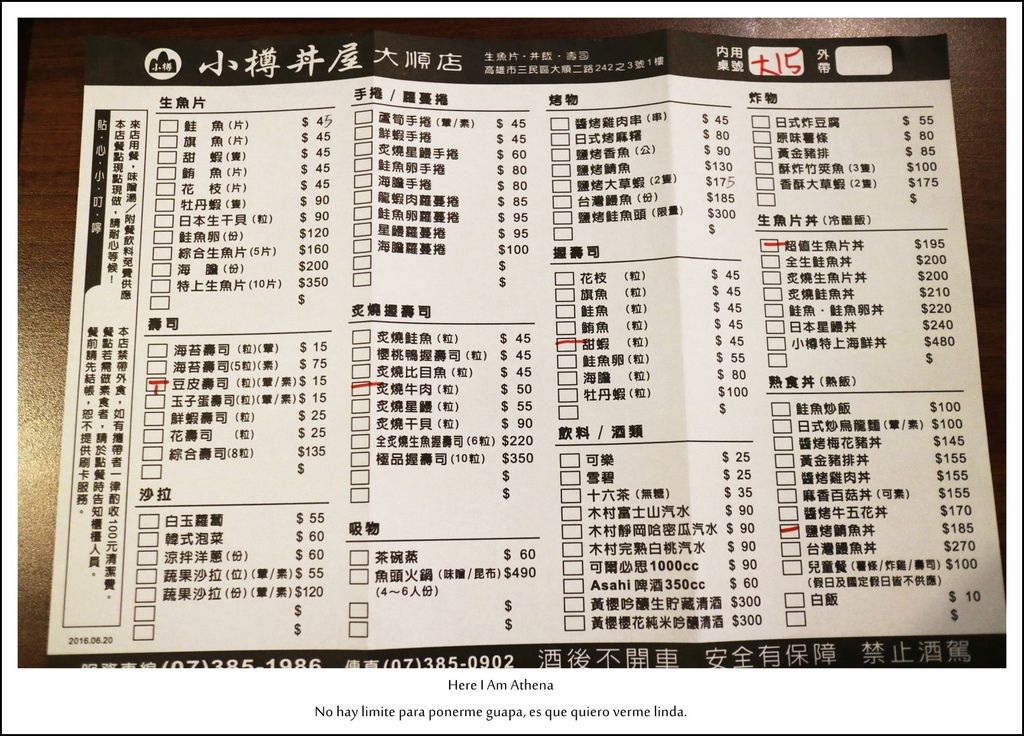 小樽 小樽丼屋 大順店
生魚片・丼飯・壽司
高雄市三民區大順二路242之3號1樓
內用桌號 大15 外帶
貼・心・小・叮・嚀
來店用餐，味噌湯／附餐飲料免費供應
本店餐點現點現做，請耐心等候！
本店禁帶外食，如有攜帶者一律酌收100元清潔費。
餐點若需做素食者，請於點餐時告知櫃檯人員。
餐前請先結帳，恕不提供刷卡服務。
2016.06.20
生魚片
鮭 魚(片) $ 45
旗 魚(片) $ 45
甜 蝦(隻) $ 45
鮪 魚(片) $ 45
花 枝(片) $ 45
牡丹蝦(隻) $ 90
日本生干貝(粒) $ 90
鮭魚卵(份) $120
綜合生魚片(5片) $160
海 膽(份) $200
特上生魚片(10片) $350
$
壽司
海苔壽司(粒)(葷) $ 15
海苔壽司(5粒)(素) $ 75
豆皮壽司(粒)(葷/素) $ 15
玉子蛋壽司(粒)(葷/素) $ 15
鮮蝦壽司(粒) $ 25
花壽司 (粒) $ 25
綜合壽司(8粒) $135
$
沙拉
白玉蘿蔔 $ 55
韓式泡菜 $ 60
涼拌洋蔥(份) $ 60
蔬果沙拉(位)(葷/素) $ 55
蔬果沙拉(份)(葷/素) $120
$
$
手捲 / 蘿蔓捲
蘆筍手捲(葷/素) $ 45
鮮蝦手捲 $ 45
炙燒星鰻手捲 $ 60
鮭魚卵手捲 $ 80
海膽手捲 $ 80
龍蝦肉蘿蔓捲 $ 85
鮭魚卵蘿蔓捲 $ 95
星鰻蘿蔓捲 $ 95
海膽蘿蔓捲 $100
$
$
炙燒握壽司
炙燒鮭魚(粒) $ 45
櫻桃鴨握壽司(粒) $ 45
炙燒比目魚(粒) $ 45
炙燒牛肉(粒) $ 50
炙燒星鰻(粒) $ 55
炙燒干貝(粒) $ 90
全炙燒生魚握壽司(6粒) $220
極品握壽司(10粒) $350
$
$
吸物
茶碗蒸 $ 60
魚頭火鍋(味噌/昆布) $490
(4～6人份)
$
$
烤物
醬烤雞肉串(串) $ 45
日式烤麻糬 $ 80
鹽烤香魚(公) $ 90
鹽烤鯖魚 $130
鹽烤大草蝦(2隻) $175
台灣鰻魚(份) $185
鹽烤鮭魚頭(限量) $300
$
握壽司
花枝 (粒) $ 45
旗魚 (粒) $ 45
鮭魚 (粒) $ 45
鮪魚 (粒) $ 45
甜蝦 (粒) $ 45
鮭魚卵(粒) $ 55
海膽 (粒) $ 80
牡丹蝦(粒) $100
$
飲料 / 酒類
可樂 $ 25
雪碧 $ 25
十六茶(無糖) $ 35
木村富士山汽水 $ 90
木村靜岡哈密瓜汽水 $ 90
木村完熟白桃汽水 $ 90
可爾必思1000cc $ 90
Asahi啤酒350cc $ 60
黃櫻吟釀生貯藏清酒 $300
黃櫻櫻花純米吟釀清酒 $300
炸物
日式炸豆腐 $ 55
原味薯條 $ 80
黃金豬排 $ 85
酥炸竹筴魚(3隻) $100
香酥大草蝦(2隻) $175
生魚片丼(冷醋飯)
超值生魚片丼 $195
全生鮭魚丼 $200
炙燒生魚片丼 $200
炙燒鮭魚丼 $210
鮭魚・鮭魚卵丼 $220
日本星鰻丼 $240
小樽特上海鮮丼 $480
$
熟食丼(熱飯)
鮭魚炒飯 $100
日式炒烏龍麵(葷/素) $100
醬烤梅花豬丼 $145
黃金豬排丼 $155
醬烤雞肉丼 $155
麻香百菇丼(可素) $155
醬烤牛五花丼 $170
鹽烤鯖魚丼 $185
台灣鰻魚丼 $270
兒童餐(薯條/炸雞/壽司) $100
(假日及國定假日皆不供應)
白飯 $ 10
$
服務專線(07)385-1986 傳真(07)385-0902 酒後不開車 安全有保障 禁止酒駕
Here I Am Athena
No hay limite para ponerme guapa, es que quiero verme linda.